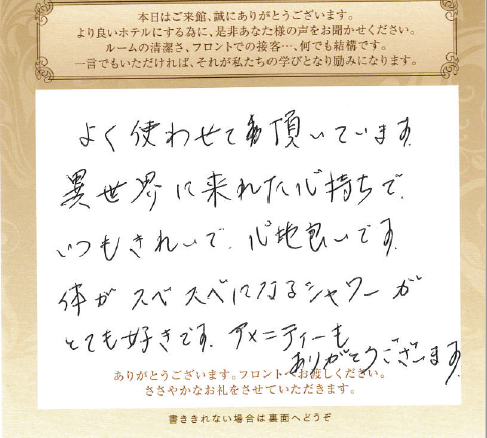 本日はご来館、誠にありがとうございます。
より良いホテルにする為に、是非あなた様の声をお聞かせください。
ルームの清潔さ、フロントでの接客…、何でも結構です。
一言でもいただければ、それが私たちの学びとなり励みになります。
よく使わせて頂いています。
異世界に来れた心持ちで、
いつもきれいで、心地良いです。
体がスベスベになるシャワーが
とても好きです。アメニティーも
ありがとうございます。
ありがとうございます。フロントへお渡しください。
ささやかなお礼をさせていただきます。
書ききれない場合は裏面へどうぞ